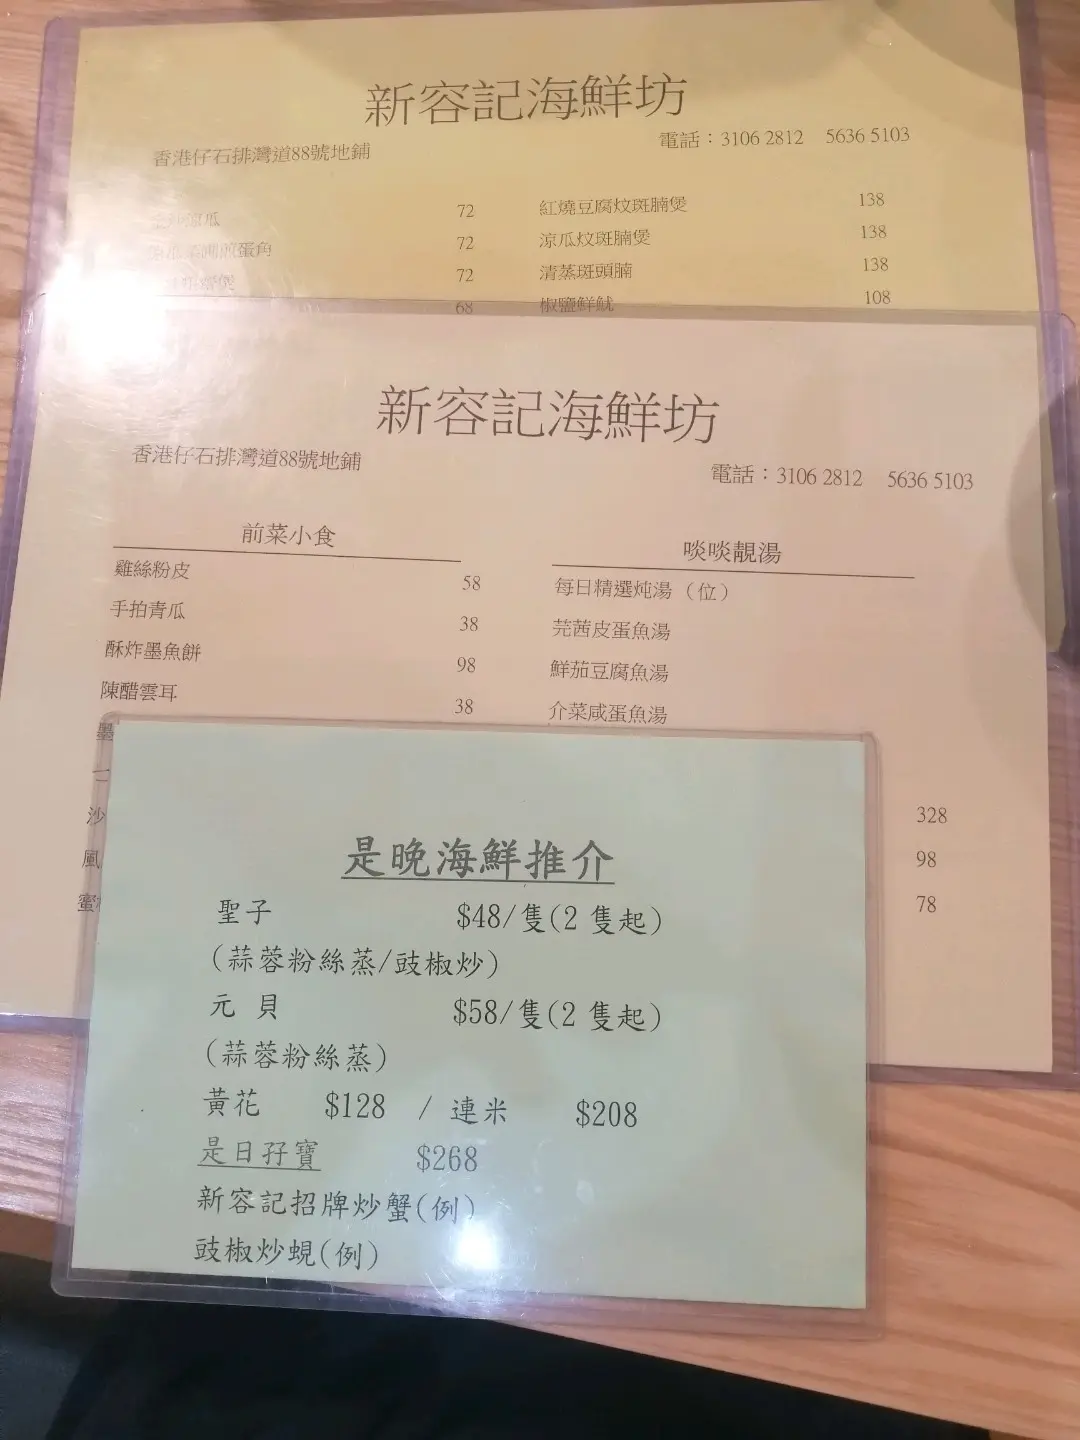 新容記海鮮坊
香港仔石排灣道88號地鋪 電話：3106 2812 5636 5103
涼瓜 72 紅燒豆腐炆斑腩煲 138
煎蛋角 72 涼瓜炆斑腩煲 138
煲 72 清蒸斑頭腩 138
68 椒鹽鮮魷 108
新容記海鮮坊
香港仔石排灣道88號地鋪 電話：3106 2812 5636 5103
前菜小食
雞絲粉皮 58
手拍青瓜 38
酥炸墨魚餅 98
陳醋雲耳 38
墨
沙
風
蜜
啖啖靚湯
每日精選炖湯（位）
芫茜皮蛋魚湯
鮮茄豆腐魚湯
介菜咸蛋魚湯
328
98
78
是晚海鮮推介
聖子 $48/隻(2 隻起)
(蒜蓉粉絲蒸/豉椒炒)
元 貝 $58/隻(2 隻起)
(蒜蓉粉絲蒸)
黃花 $128 / 連米 $208
是日孖寶 $268
新容記招牌炒蟹(例)
豉椒炒蜆(例)